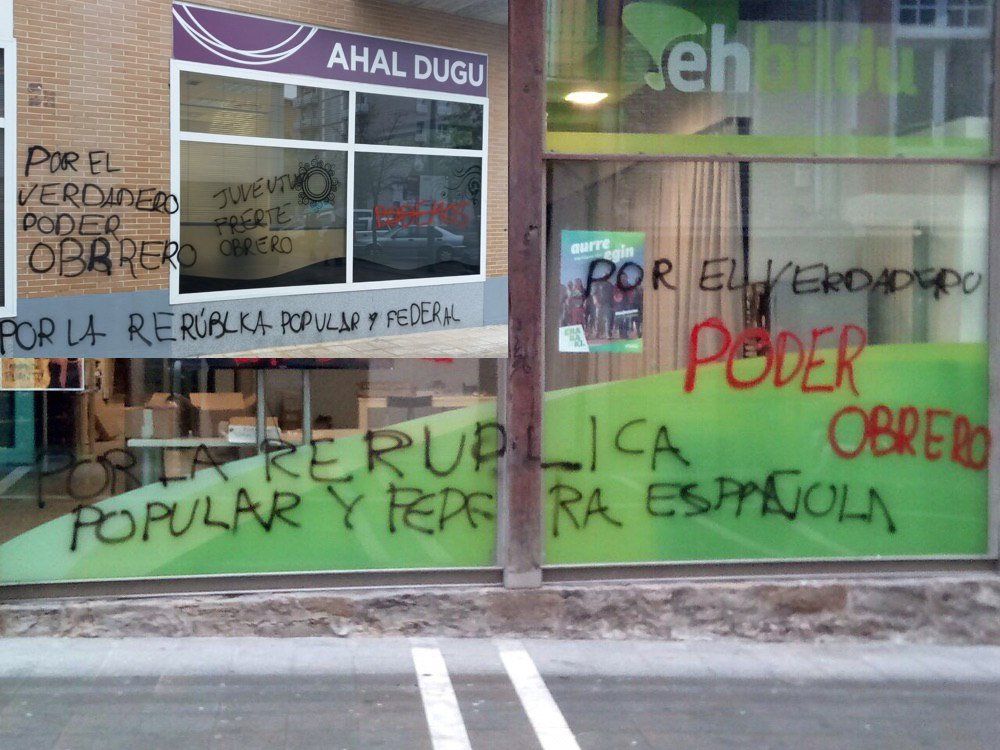 AHAL DUGU
POR EL
VERDADERO
PODER
OBRRERO
JUVENTU
FRERTE
OBRERO
PODEMOS
POR LA RERÚBLKA POPULAR Y FEDERAL
ehbildu
aurre
egin
POR EL VERDADERO
PODER
OBRERO
POR LA RERUBLICA
POPULAR Y FEDERA ESPAÑOLA